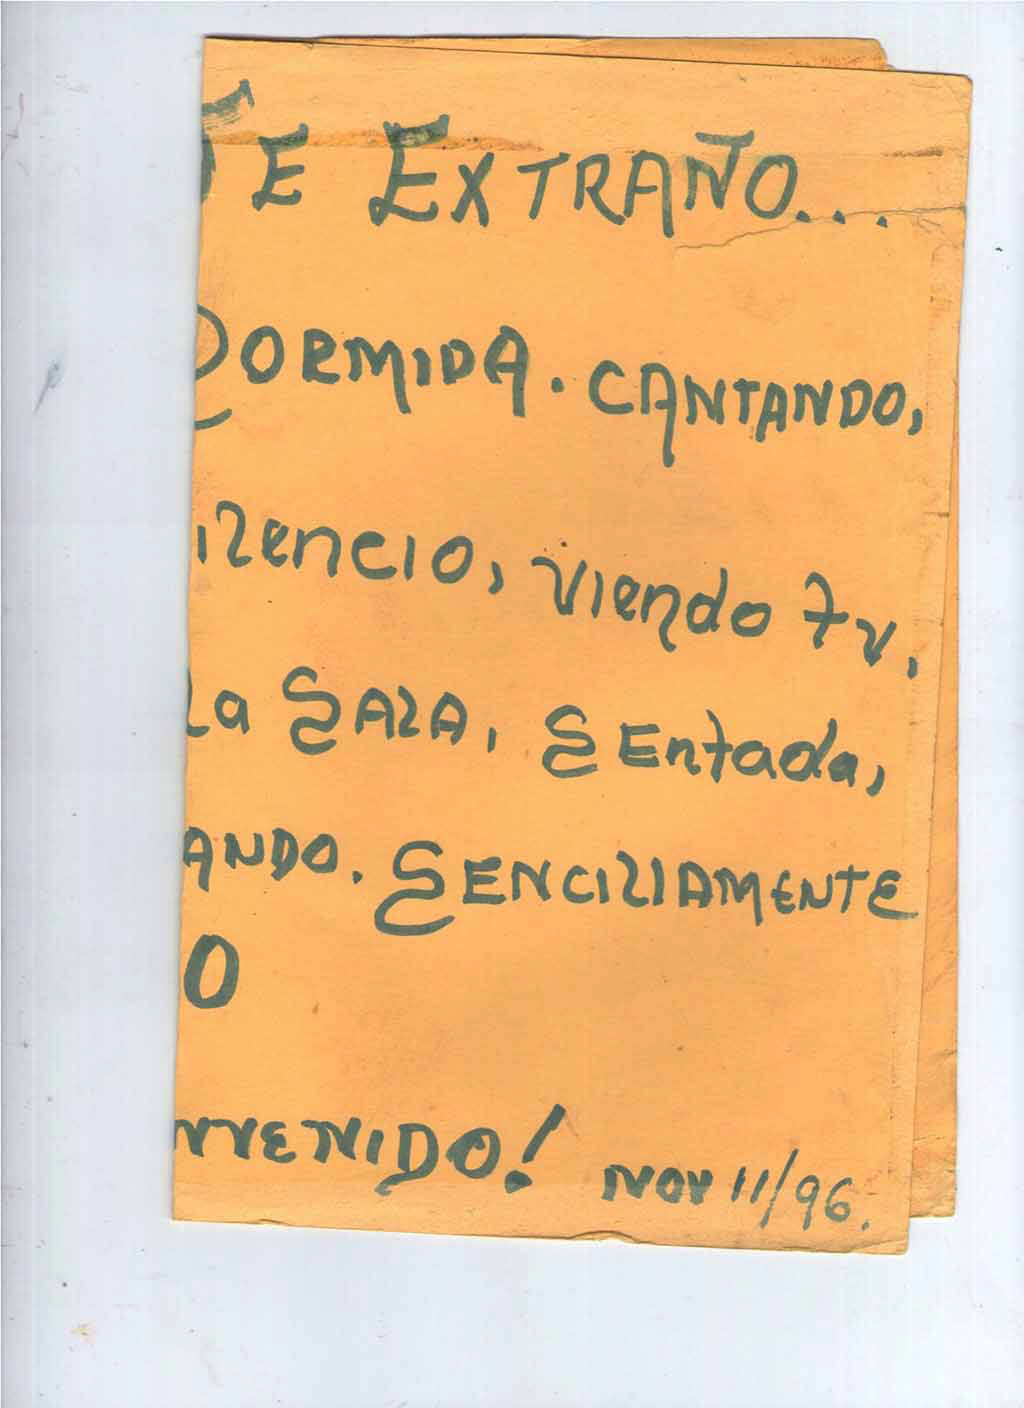 TE EXTRAÑO...
DORMIDA. CANTANDO,
ilencio, viendo tv,
La SALA, SEntada,
ANDO. SENCILLAMENTE
O
NVENIDO! NOV 11/96.